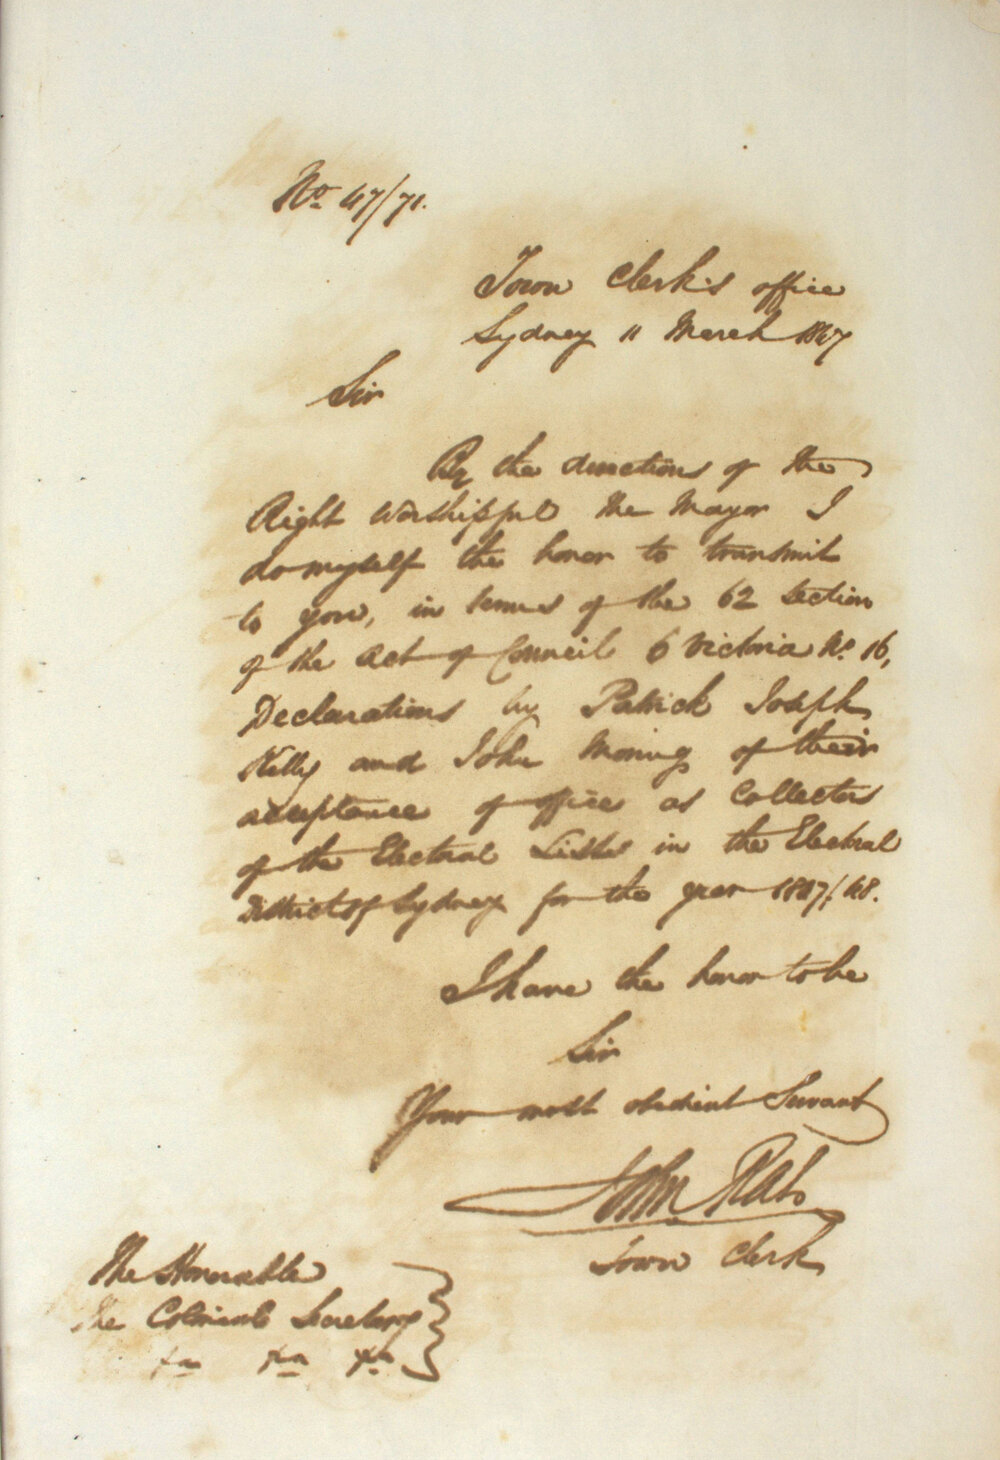 No 47/71.
Town Clerk's office
Sydney 11 March 1847
Sir
By the directions of the
Right Worshipful the Mayor I
do myself the honor to transmit
to you, in terms of the 62 section
of the Act of Council 6 Victoria No. 16,
Declarations by Patrick Joseph
Kelly and John Moring of their
acceptance of office as Collectors
of the Electoral Lists in the Electoral
District of Sydney for the year 1847/48.
I have the honor to be
Sir
Your most obedient Servant
John Rae
Town Clerk
The Honorable
The Colonial Secretary